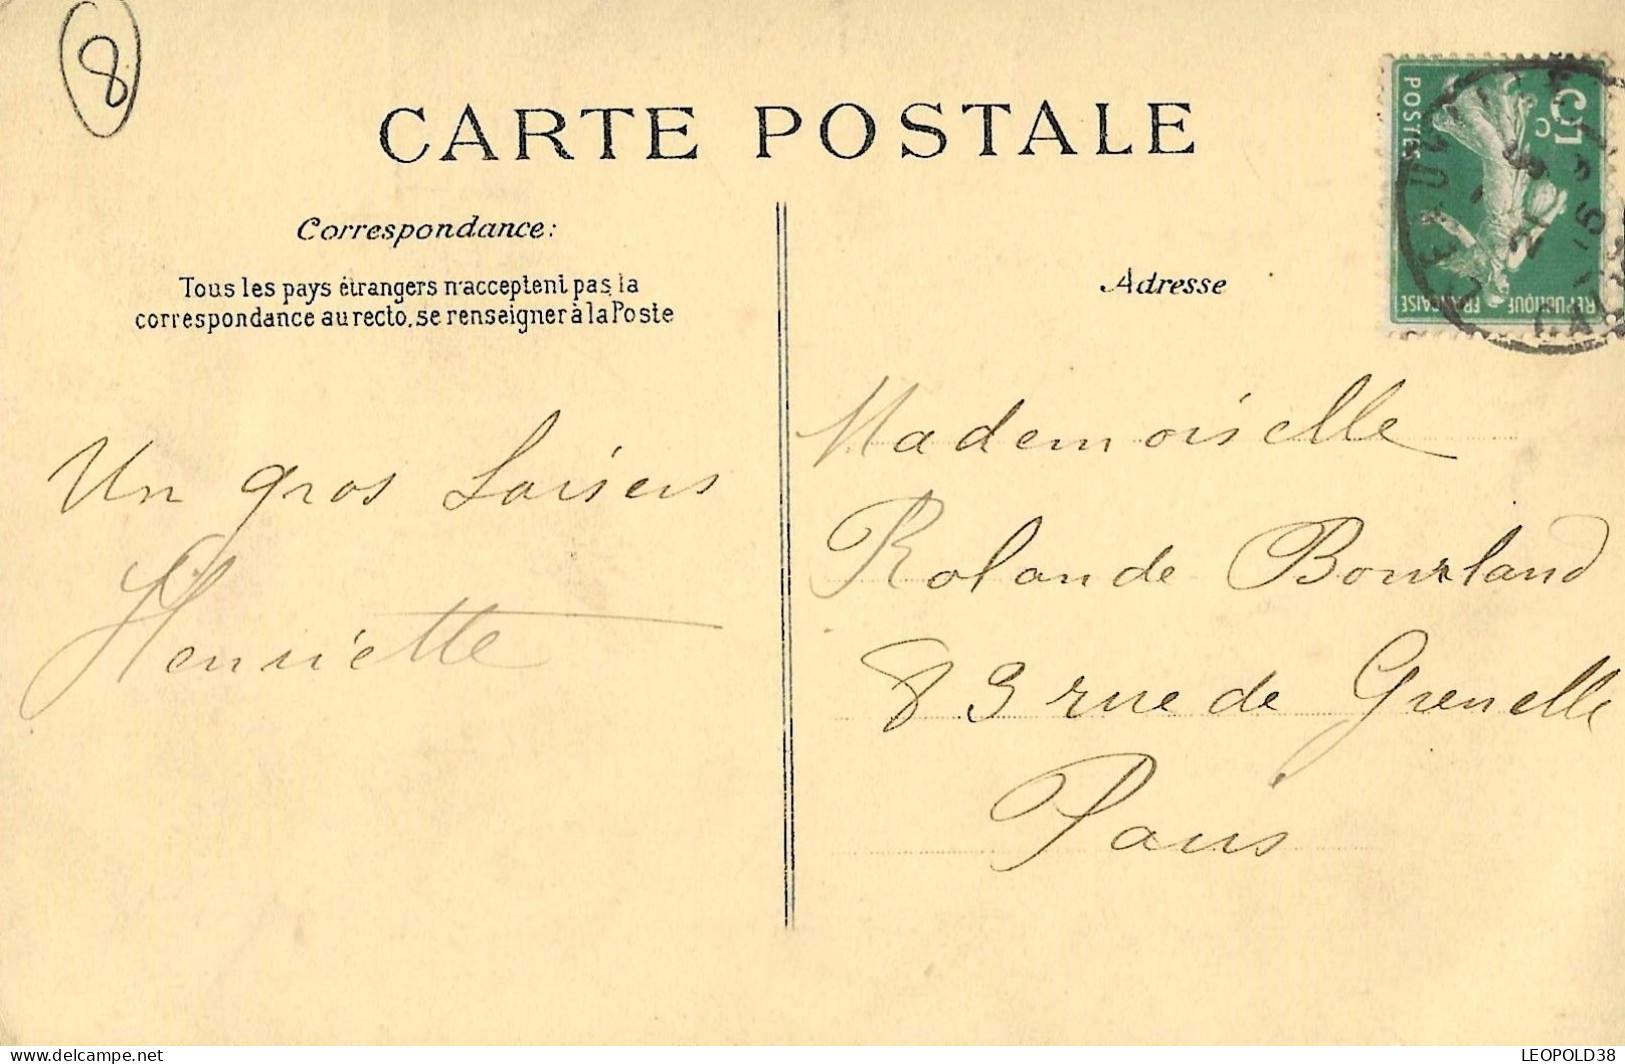 8
CARTE POSTALE
Correspondance:
Tous les pays étrangers n'acceptent pas la
correspondance au recto, se renseigner à la Poste
Un gros baisers
Henriette
Adresse
Mademoiselle
Rolande Bourland
83 rue de Grenelle
Paris
5c
POSTES
REPUBLIQUE FRANÇAISE
delcampe.net
LEOPOLD38